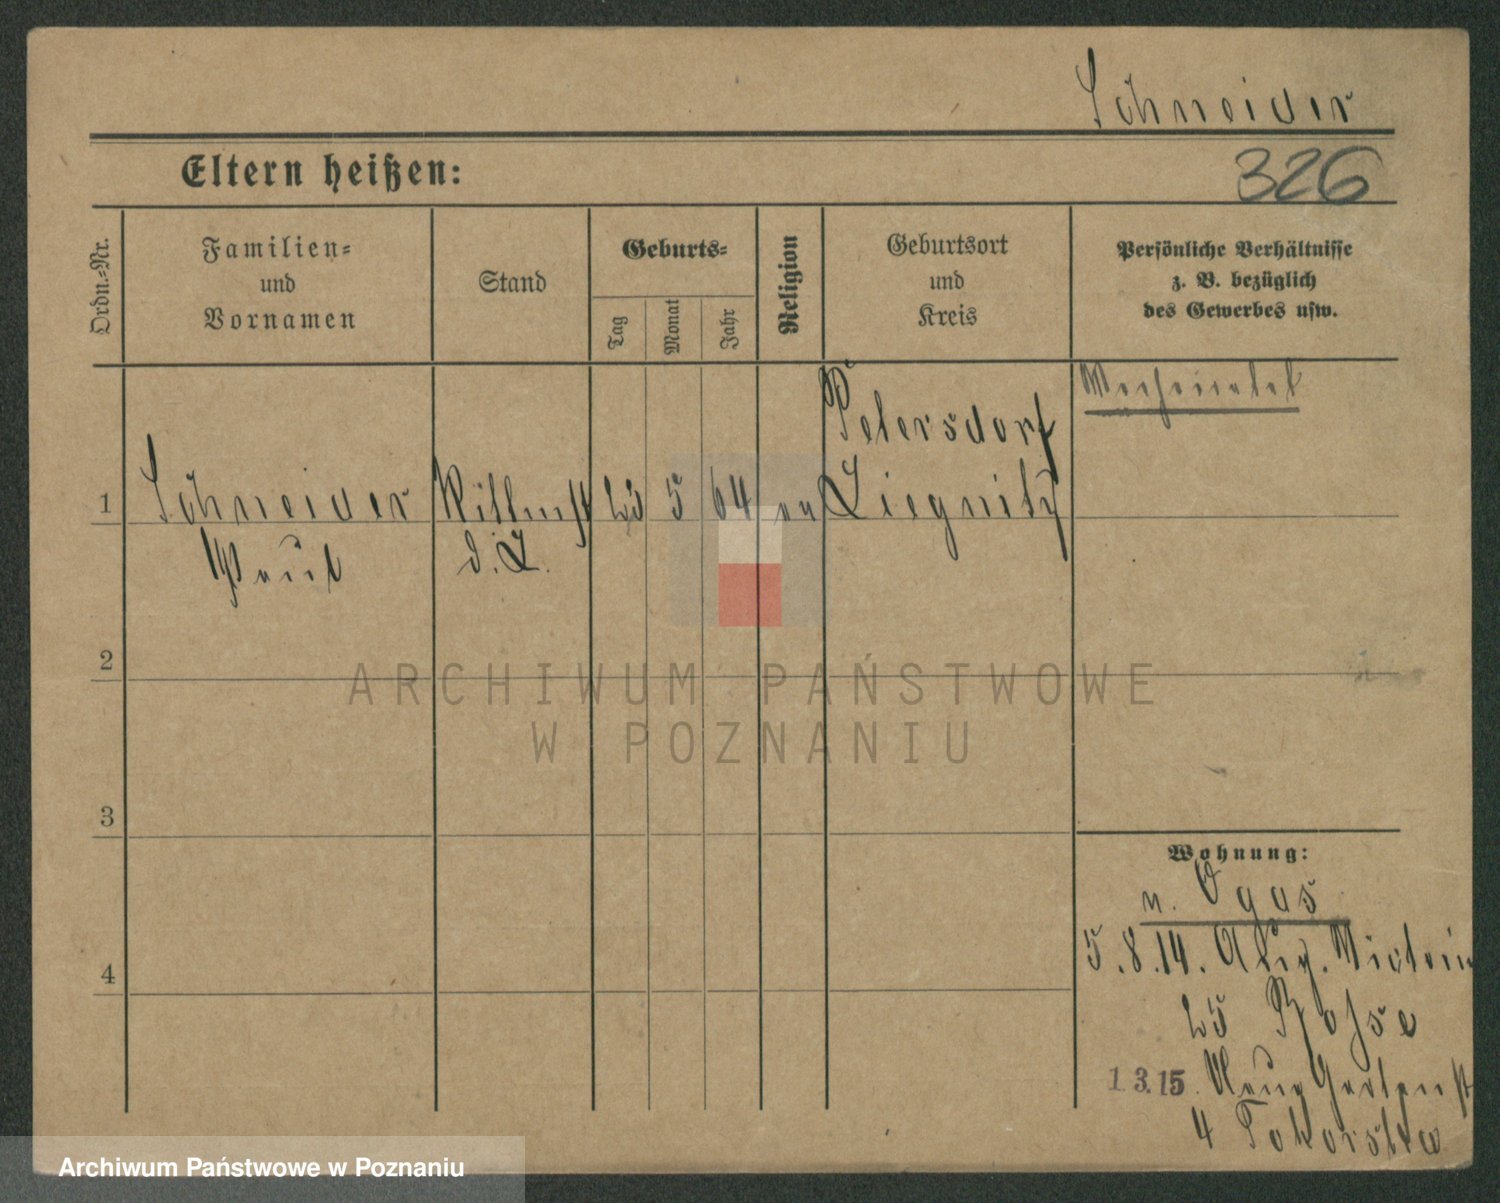 Schneider
Eltern heißen:
326
Ordn.-Nr.
Familien-
und
Vornamen
Stand
Geburts-
Tag
Monat
Jahr
Religion
Geburtsort
und
Kreis
Persönliche Verhältnisse
z. B. bezüglich
des Gewerbes usw.
Petersdorf
1
Schneider
5
64
Liegnitz
Paul
d. L.
2
3
4
Wohnung:
5.8.14.
25
1.3.15
4
ARCHIWUM PAŃSTWOWE
W POZNANIU
Archiwum Państwowe w Poznaniu